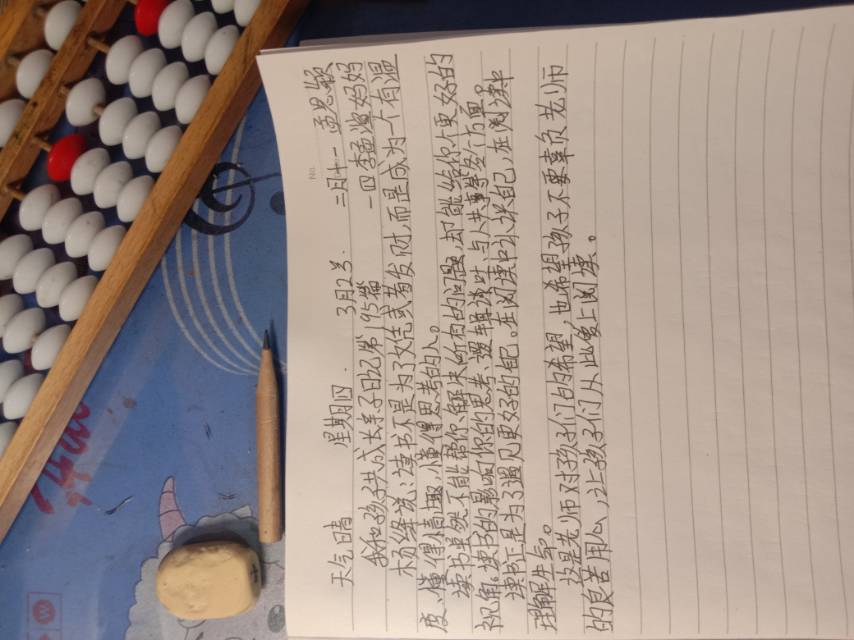 天气晴 星期四 3月2号 二月十一 孟思颖
我和孩子共成长亲子日记第195篇 一四李孟涵妈妈
杨绛说：读书不是为了文凭或者发财，而是成为一个有温
度、懂得情趣，懂得思考的人。
读书虽然不能帮你解决所有的问题，却能给你个更好的
视角。读书的影响你的思考、逻辑、谈吐、与人共事等各方面。
读书正是为了遇见更好的自己，在阅读中寻求自己，在阅读中
理解生命。
这是老师对孩子们的希望，也希望孩子不要辜负老师
的良苦用心，让孩子们从此爱上阅读。